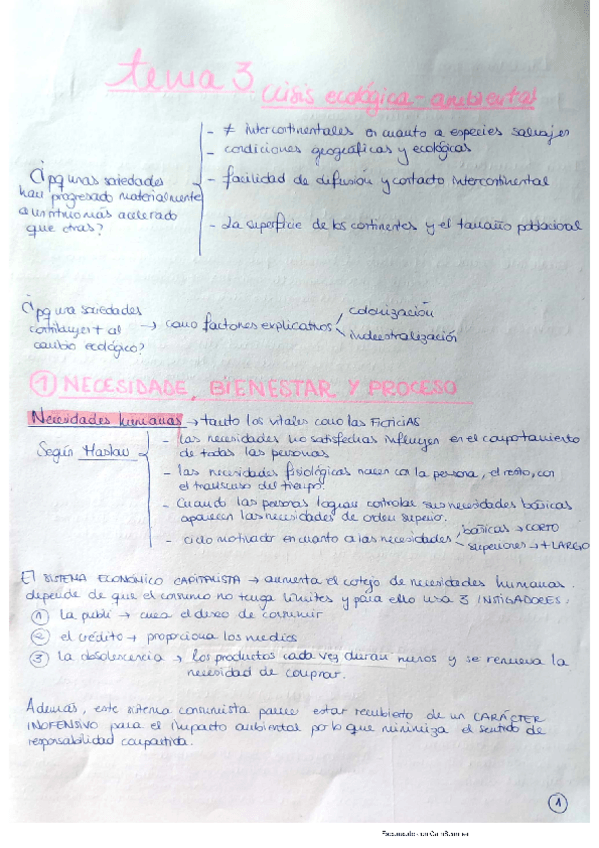 tema 3 crisis ecológica-ambiental
- ≠ intercontinentales en cuanto a especies salvajes
- condiciones geográficas y ecológicas
¿pq unas sociedades
han progresado materialmente
a un ritmo más acelerado
que otras?
- facilidad de difusión y contacto intercontinental
- La superficie de los continentes y el tamaño poblacional
¿pq una sociedades
contribuyen + al
cambio ecológico?
→ como factores explicativos
colonización
industrialización
① NECESIDADE, BIENESTAR Y PROCESO
Necesidades humanas → tanto las vitales como las FICTICIAS
Según Maslow
- las necesidades no satisfechas influyen en el comportamiento
de todas las personas
- las necesidades fisiológicas nacen con la persona, el resto, con
el transcurso del tiempo.
- Cuando las personas logran controlar sus necesidades básicas
aparecen las necesidades de orden superior.
- ciclo motivador en cuanto a las necesidades
básicas → CORTO
superiores → + LARGO
El SISTEMA ECONÓMICO CAPITALISTA → aumenta el cotejo de necesidades humanas.
depende de que el consumo no tenga límites y para ello usa 3 INSTIGADORES.
① la publi → crea el deseo de consumir
② el crédito → proporciona los medios
③ la obsolescencia → los productos cada vez duran menos y se renueva la
necesidad de comprar.
Además, este sistema consumista parece estar recubierto de un CARÁCTER
INOFENSIVO para el impacto ambiental por lo que minimiza el sentido de
responsabilidad compartida.
1